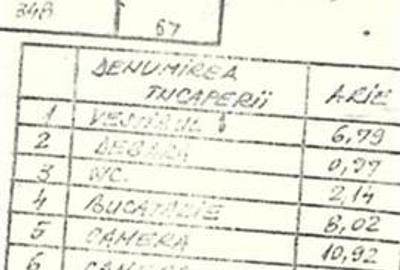 348
67
DENUMIREA
INCAPERII ARIE
1 VESTIBUL 6,79
2 DEBARA 0,97
3 WC. 2,14
4 BUCATARIE 8,02
5 CAMERA 10,92
6 CAMERA